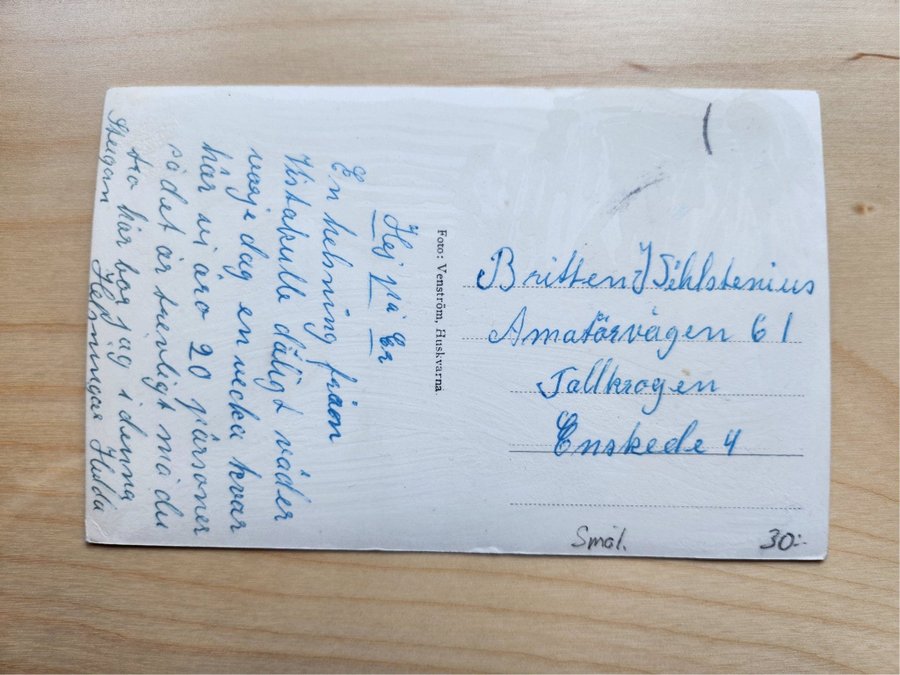 Hej på Er
En helsning från
Vistakulle dåligt väder
varje dag en vecka kvar
här vi äro 20 pärsoner
så det är trevligt må du
tro här bor jag i denna
Stugan Helsningar Hulda
Foto: Venström, Huskvarna.
Britten Sihlstenius
Amatörvägen 61
Tallkrogen
Enskede 4
Smål. 30:-